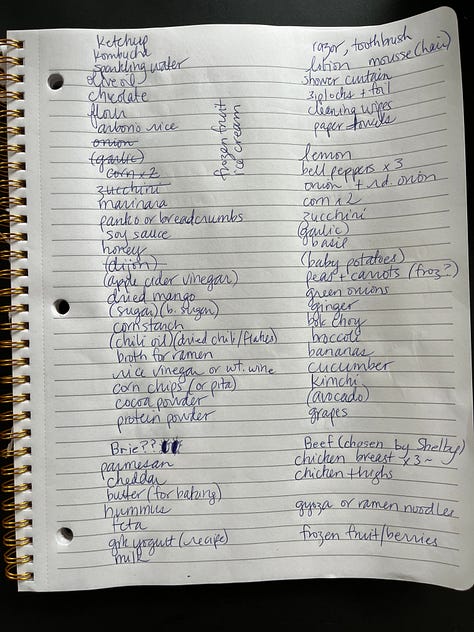 Ketchup
Kombucha
sparkling water
olive oil
chocolate
flour
arborio rice
onion
(garlic)
corn x 2
zucchini
marinara
panko or breadcrumbs
soy sauce
honey
(dijon)
(apple cider vinegar)
dried mango
(sugar) (b. sugar)
cornstarch
(chili oil) (dried chili/flakes)
broth for ramen
rice vinegar or wt. wine
corn chips (or pita)
cocoa powder
protein powder
Brie??
parmesan
cheddar
butter (for baking)
hummus
feta
grk yogurt (recipe)
milk
frozen fruit
ice cream
razor, toothbrush
lotion mousse (hair)
shower curtain
ziplocks + foil
cleaning wipes
paper towels
lemon
bell peppers x 3
onion + rd. onion
corn x 2
zucchini
(garlic)
basil
(baby potatoes)
peas + carrots (froz?)
green onions
ginger
bok choy
broccoli
bananas
cucumber
kimchi
(avocado)
grapes
Beef (chosen by Shelby)
chicken breast x 3 ~
chicken thighs
gyoza or ramen noodles
frozen fruit/berries